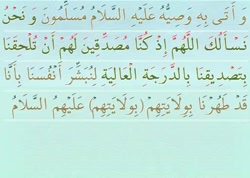 وَ أَتَى بِهِ وَصِيُّهُ عَلَيْهِ السَّلَامُ مُسَلِّمُونَ وَ نَحْنُ
نَسْأَلُكَ اللَّهُمَّ إِذْ كُنَّا مُصَدِّقِينَ لَهُمْ أَنْ تُلْحِقَنَا
بِتَصْدِيقِنَا بِالدَّرَجَةِ الْعَالِيَةِ لِنُبَشِّرَ أَنْفُسَنَا بِأَنَّا
قَدْ طَهُرْنَا بِوَلَايَتِهِمْ (بِوَلَايَتِهِمْ) عَلَيْهِمُ السَّلَامُ